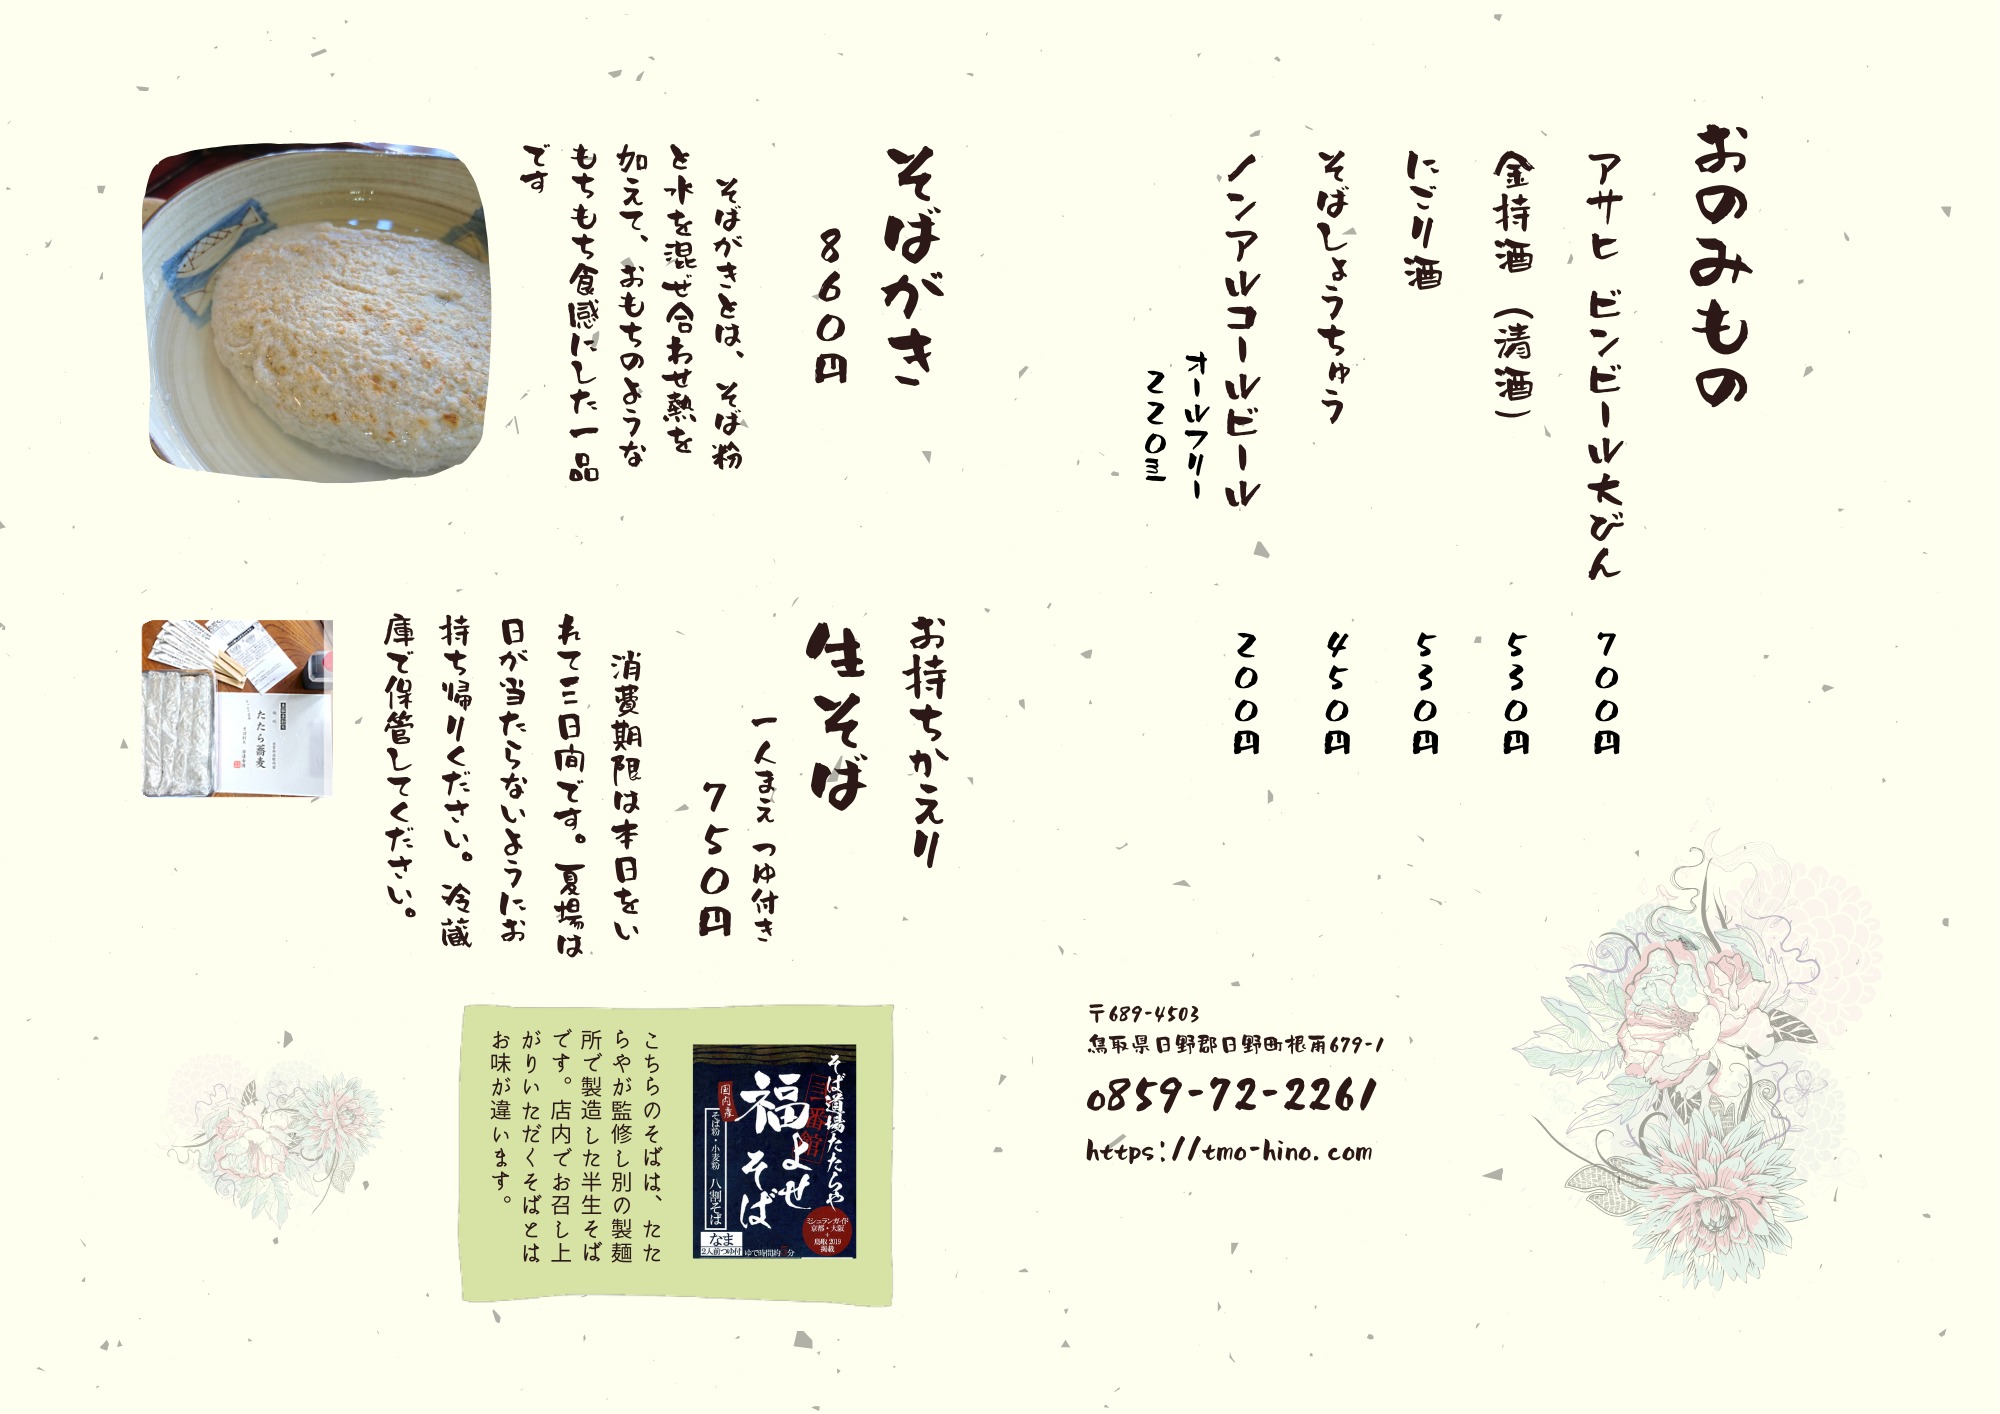 おのみもの
アサヒ ビンビール大びん
700円
金持酒（清酒）
530円
にごり酒
530円
そばしょうちゅう
450円
ノンアルコールビール
オールフリー
220ml
200円
〒689-4503
鳥取県日野郡日野町根雨679-1
0859-72-2261
https://tmo-hino.com
そばがき
860円
そばがきとは、そば粉
と水を混ぜ合わせ熱を
加えて、おもちのような
もちもち食感にした一品
です
お持ちかえり
生そば
一人まえ つゆ付き
750円
消費期限は本日をい
れて三日間です。夏場は
日が当たらないようにお
持ち帰りください。冷蔵
庫で保管してください。
たたら蕎麦
そば道場たたらや
三番館
福よせ
そば
国内産
そば粉・小麦粉 八割そば
なま
2人前つゆ付
ゆで時間約 分
ミシュランガイド
京都・大阪
+
鳥取2019
掲載
こちらのそばは、たた
らやが監修し別の製麺
所で製造した半生そば
です。店内でお召し上
がりいただくそばとは
お味が違います。